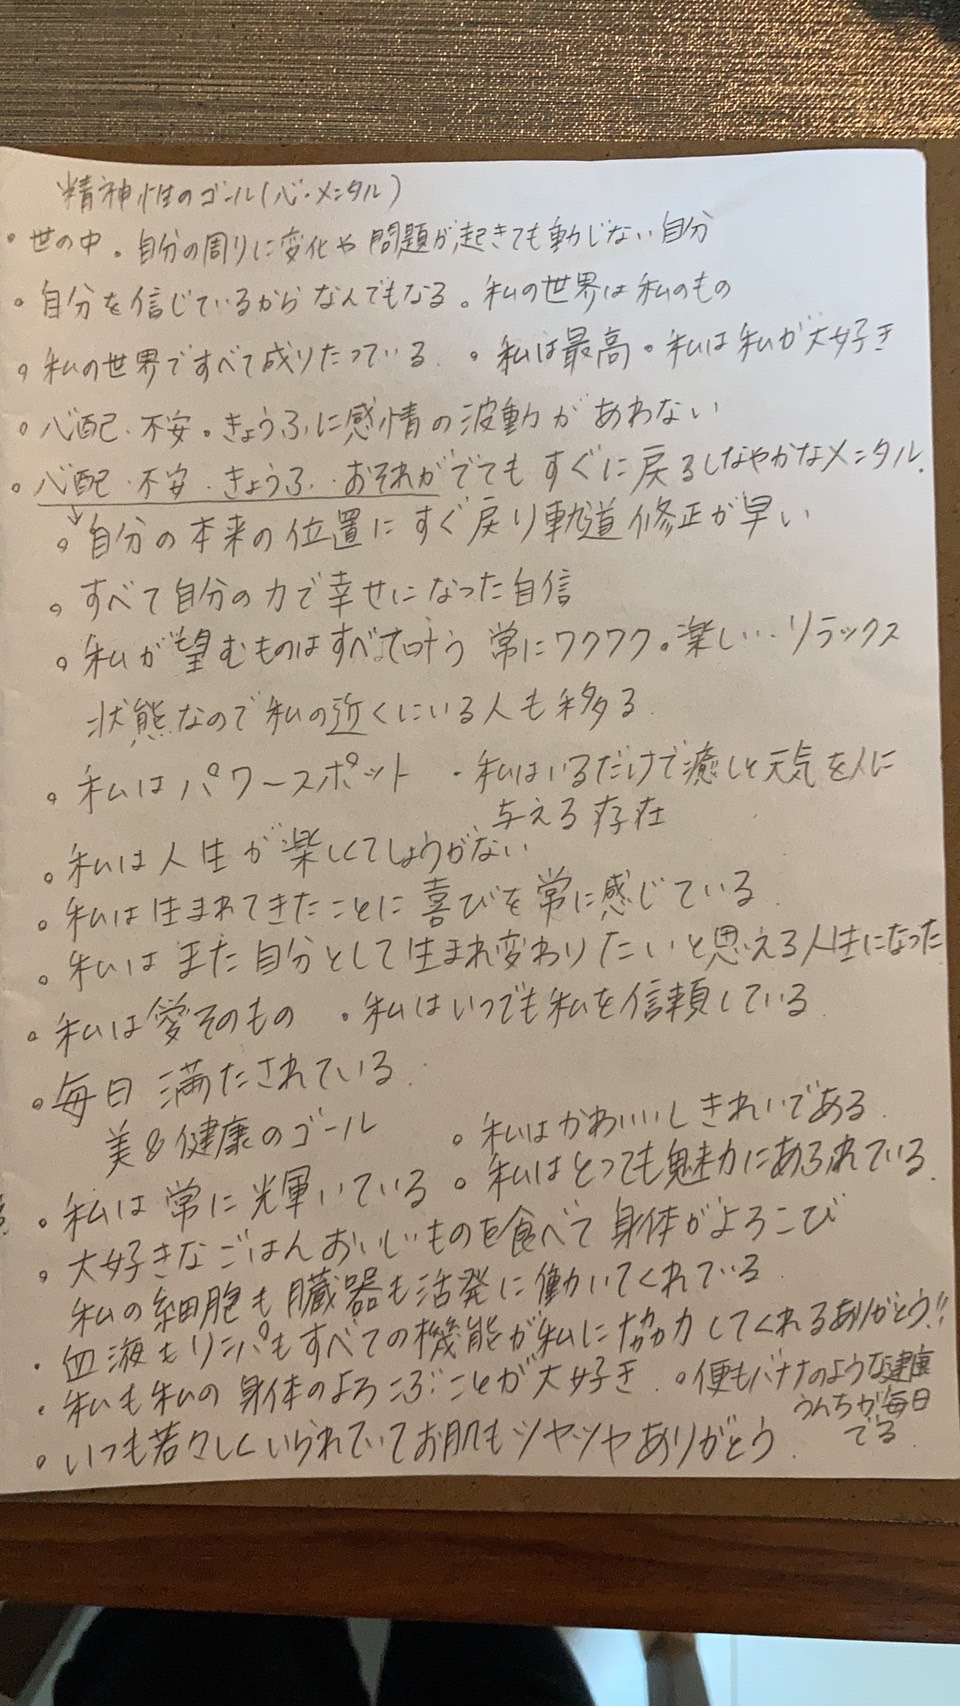 精神性のゴール(心・メンタル)
。世の中。自分の周りに変化や問題が起きても動じない自分
。自分を信じているからなんでもなる。私の世界は私のもの
。私の世界ですべて成りたっている。 。私は最高。私は私が大好き
。心配.不安。きょうふに感情の波動があわない
。心配.不安.きょうふ..おそれがでてもすぐに戻るしなやかなメンタル.
↓。自分の本来の位置にすぐ戻り軌道修正が早い
。すべて自分の力で幸せになった自信
。私が望むものはすべて叶う 常にワクワク。楽しい..リラックス
状態なので私の近くにいる人も移る.
。私はパワースポット ・私はいるだけで癒しと元気を人に
与える存在
。私は人生が楽しくてしょうがない
。私は生まれてきたことに喜びを常に感じている.
。私はまた自分として生まれ変わりたいと思える人生になった
。私は愛そのもの ・私はいつでも私を信頼している
。毎日満たされている.
美&健康のゴール 。私はかわいいしきれいである
。私は常に光輝いている 。私はとっても魅力にあふれている.
。大好きなごはんおいしいものを食べて身体がよろこび
私の細胞も臓器も活発に働いてくれている
・血液もリンパもすべての機能が私に協力してくれるありがとう!!
・私も私の身体のよろこぶことが大好き. 。便もバナナのような健康
うんちが毎日
でる.
。いつも若々しくいられていてお肌もツヤツヤありがとう.